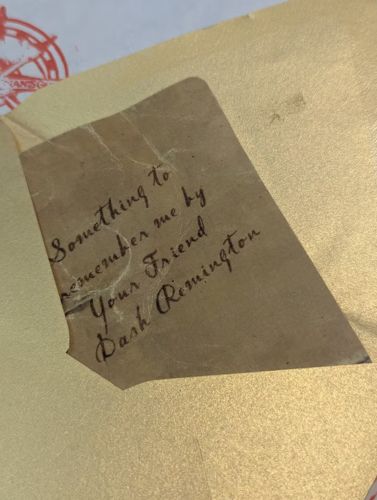 Something to
remember me by
Your Friend
Dash Remington